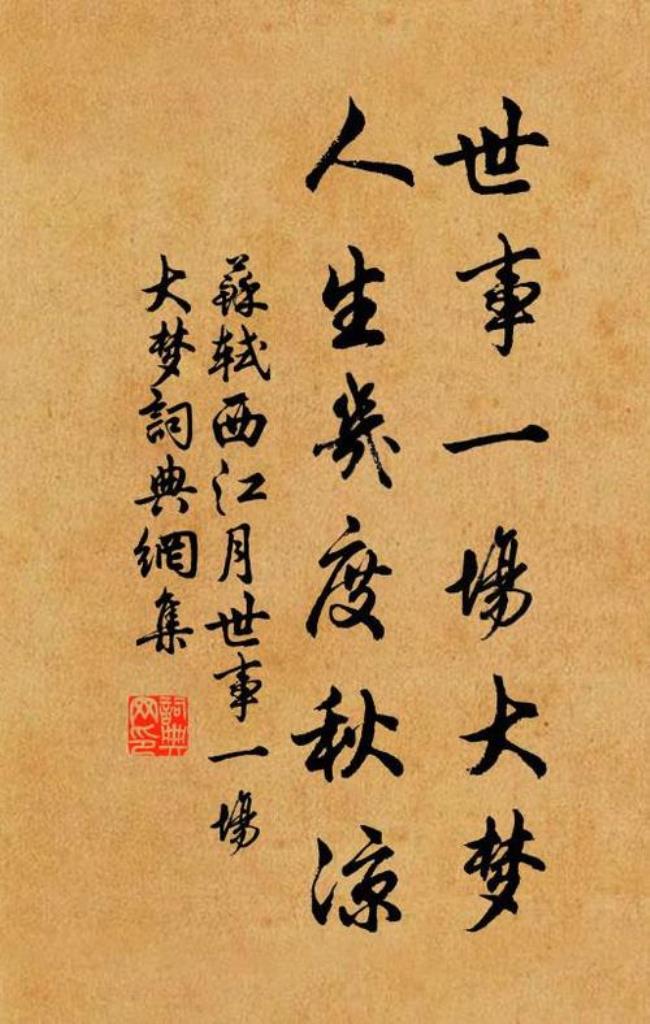 世事一場大梦
人生幾度秋凉
蘇軾西江月世事一場
大梦詞典網集
詞典
网印